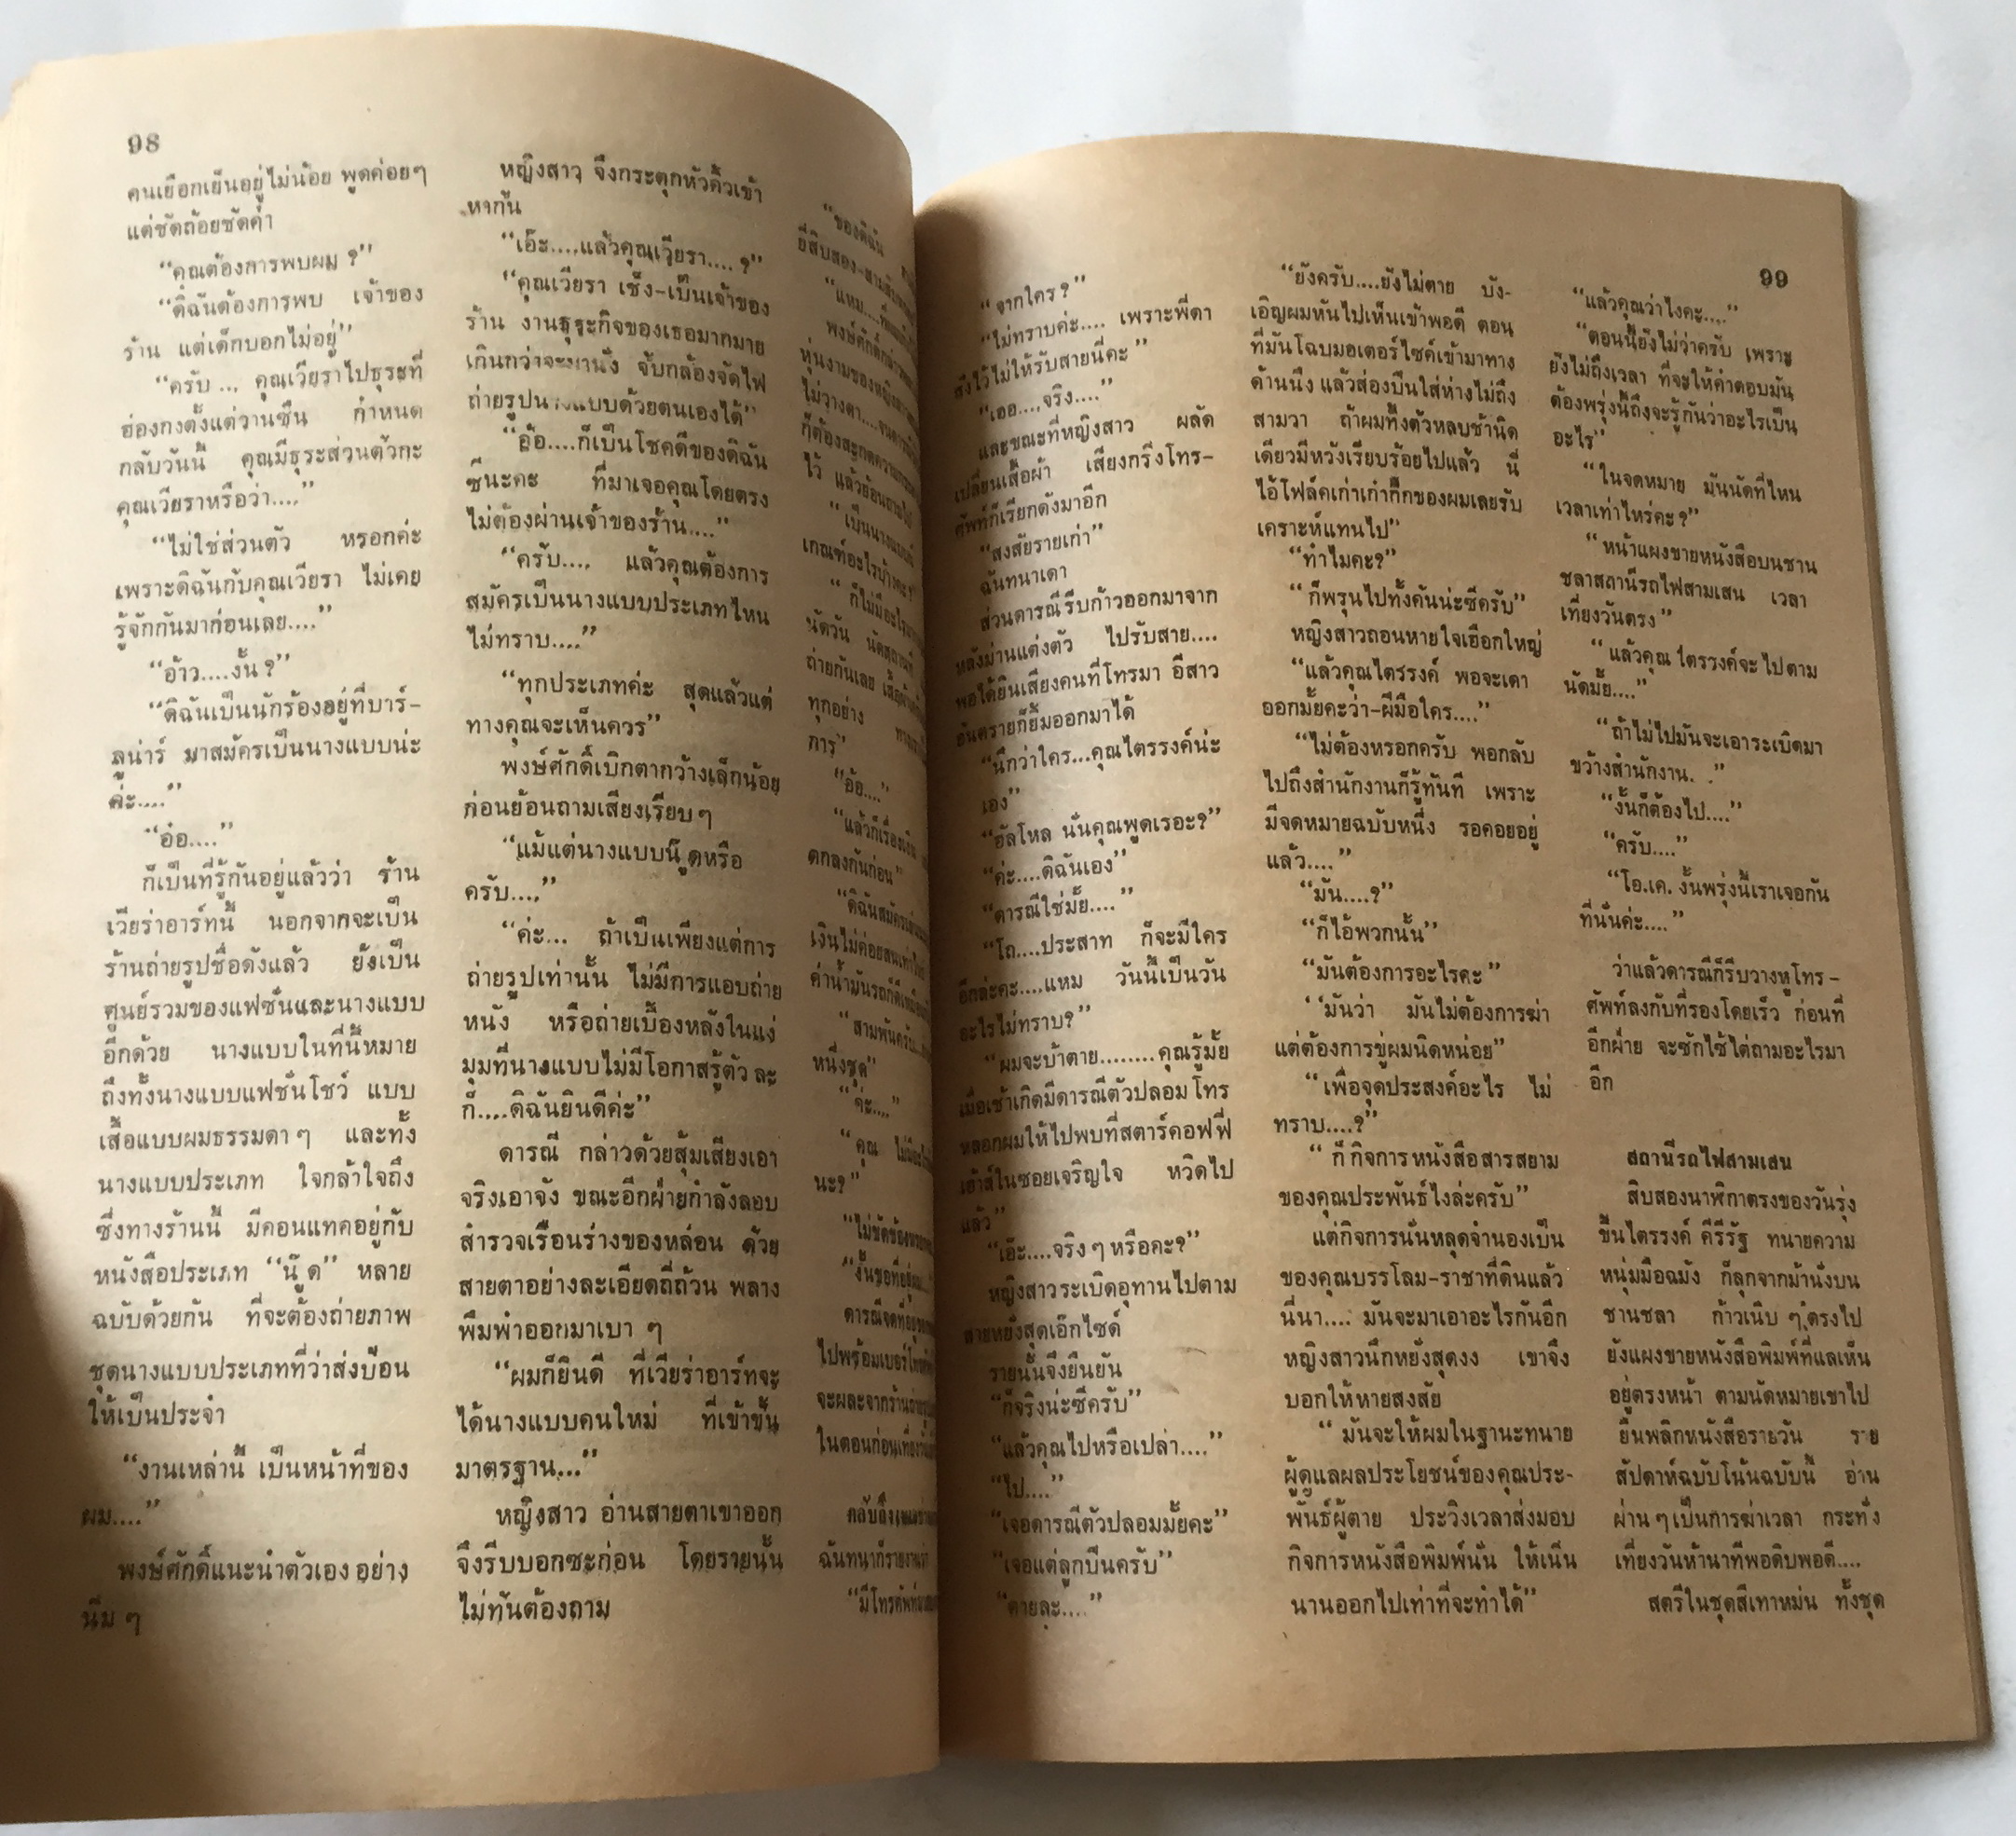 98
คนเยือกเย็นอยู่ไม่น้อย พูดค่อยๆ
แต่ชัดถ้อยชัดคำ
“คุณต้องการพบผม ?”
“ดิฉันต้องการพบ เจ้าของ
ร้าน แต่เด็กบอกไม่อยู่”
“ครับ ... คุณเวียราไปธุระที่
ฮ่องกงตั้งแต่วานซืน กำหนด
กลับวันนี้ คุณมีธุระส่วนตัวกะ
คุณเวียราหรือว่า....”
“ไม่ใช่ส่วนตัว หรอกค่ะ
เพราะดิฉันกับคุณเวียรา ไม่เคย
รู้จักกันมาก่อนเลย....”
“อ้าว....งั้น ?”
“ดิฉันเป็นนักร้องอยู่ที่บาร์-
ลูน่าร์ มาสมัครเป็นนางแบบน่ะ
ค่ะ....”
“อ๋อ....”
ก็เป็นที่รู้กันอยู่แล้วว่า ร้าน
เวียร่าอาร์ทนี้ นอกจากจะเป็น
ร้านถ่ายรูปชื่อดังแล้ว ยังเป็น
ศูนย์รวมของแฟชั่นและนางแบบ
อีกด้วย นางแบบในที่นี้หมาย
ถึงทั้งนางแบบแฟชั่นโชว์ แบบ
เสื้อแบบผมธรรมดาๆ และทั้ง
นางแบบประเภท ใจกล้าใจถึง
ซึ่งทางร้านนี้ มีคอนแทคอยู่กับ
หนังสือประเภท “นู๊ด” หลาย
ฉบับด้วยกัน ที่จะต้องถ่ายภาพ
ชุดนางแบบประเภทที่ว่าส่งป้อน
ให้เป็นประจำ
“งานเหล่านี้ เป็นหน้าที่ของ
ผม....”
พงษ์ศักดิ์แนะนำตัวเอง อย่าง
นิ่ม ๆ
หญิงสาว จึงกระตุกหัวคิ้วเข้า
หากัน
“เอ๊ะ....แล้วคุณเวียรา.... ?”
“คุณเวียรา เซ็ง-เป็นเจ้าของ
ร้าน งานธุระกิจของเธอมากมาย
เกินกว่าจะมานั่ง จับกล้องจัดไฟ
ถ่ายรูปนางแบบด้วยตนเองได้”
“อ้อ....ก็เป็นโชคดีของดิฉัน
ซีนะคะ ที่มาเจอคุณโดยตรง
ไม่ต้องผ่านเจ้าของร้าน....”
“ครับ.... แล้วคุณต้องการ
สมัครเป็นนางแบบประเภทไหน
ไม่ทราบ....”
“ทุกประเภทค่ะ สุดแล้วแต่
ทางคุณจะเห็นควร”
พงษ์ศักดิ์เบิกตากว้างเล็กน้อย
ก่อนย้อนถามเสียงเรียบๆ
“แม้แต่นางแบบนู๊ดหรือ
ครับ....”
“ค่ะ... ถ้าเป็นเพียงแต่การ
ถ่ายรูปเท่านั้น ไม่มีการแอบถ่าย
หนัง หรือถ่ายเบื้องหลังในแง่
มุมที่นางแบบไม่มีโอกาสรู้ตัว ละ
ก็....ดิฉันยินดีค่ะ”
ดารณี กล่าวด้วยสุ้มเสียงเอา
จริงเอาจัง ขณะอีกฝ่ายกำลังลอบ
สำรวจเรือนร่างของหล่อน ด้วย
สายตาอย่างละเอียดถี่ถ้วน พลาง
พึมพำออกมาเบา ๆ
“ผมก็ยินดี ที่เวียร่าอาร์ทจะ
ได้นางแบบคนใหม่ ที่เข้าขั้น
มาตรฐาน...”
หญิงสาว อ่านสายตาเขาออก
จึงรีบบอกซะก่อน โดยรายนั้น
ไม่ทันต้องถาม
“ของดิฉัน
“แหม....
ไม่วางตา....
ไว้ แล้วย้อนถาม
“เป็นนางแบบ
เกณฑ์อะไรบ้างคะ?”
“ก็ไม่มีอะไร
นัดวัน นัดสถานที่
ถ่ายกันเลย
ทุกอย่าง
การ”
“อ้อ....”
“แล้วก็เรื่องเงิน
ตกลงกันก่อน”
“ดิฉันสมัคร
เงินไม่ค่อยสน
ค่าน้ำมันรถก็
“สามพันครับ...
หนึ่งชุด”
“ค่ะ....”
“คุณ
นะ?”
“ไม่ขัดข้อง
“งั้นขอที่อยู่
ดารณีจดที่อยู่
ไปพร้อมเบอร์โทร
จะผละจากร้าน
ในตอนก่อนเที่ยง
กลับถึง
ฉันทนาก็รายงาน
“มีโทรศัพท์
99
“จากใคร ?”
“ไม่ทราบค่ะ.... เพราะพี่ดา
สั่งไว้ไม่ให้รับสายนี่คะ”
“เออ....จริง....”
และขณะที่หญิงสาว ผลัด
เปลี่ยนเสื้อผ้า เสียงกริ่งโทร-
ศัพท์ก็เรียกดังมาอีก
“สงสัยรายเก่า”
ฉันทนาเดา
ส่วนดารณีรีบก้าวออกมาจาก
หลังม่านแต่งตัว ไปรับสาย....
พอได้ยินเสียงคนที่โทรมา อีสาว
อันตรายก็ยิ้มออกมาได้
“นึกว่าใคร...คุณไตรรงค์น่ะ
เอง”
“ฮัลโหล นั่นคุณพูดเรอะ?”
“ค่ะ....ดิฉันเอง”
“ดารณีใช่มั้ย....”
“โถ....ประสาท ก็จะมีใคร
อีกล่ะคะ....แหม วันนี้เป็นวัน
อะไรไม่ทราบ?”
“ผมจะบ้าตาย........คุณรู้มั้ย
เมื่อเช้าเกิดมีดารณีตัวปลอม โทร
หลอกผมให้ไปพบที่สตาร์คอฟฟี่
เฮ้าส์ในซอยเจริญใจ หวิดไป
แล้ว”
“เอ๊ะ....จริง ๆ หรือคะ?”
หญิงสาวระเบิดอุทานไปตาม
สายหยั่งสุดเอ๊กไซด์
รายนั้นจึงยืนยัน
“ก็จริงน่ะซีครับ”
“แล้วคุณไปหรือเปล่า....”
“ไป....”
“เจอดารณีตัวปลอมมั้ยคะ”
“เจอแต่ลูกปืนครับ”
“ตายละ....”
“ยังครับ....ยังไม่ตาย บัง-
เอิญผมหันไปเห็นเข้าพอดี ตอน
ที่มันโฉบมอเตอร์ไซค์เข้ามาทาง
ด้านนึง แล้วส่องปืนใส่ห่างไม่ถึง
สามวา ถ้าผมทิ้งตัวหลบช้านิด
เดียวมีหวังเรียบร้อยไปแล้ว นี่
ไอ้โฟล์คเก่าเก๋ากึ๊กของผมเลยรับ
เคราะห์แทนไป”
“ทำไมคะ?”
“ก็พรุนไปทั้งคันน่ะซีครับ”
หญิงสาวถอนหายใจเฮือกใหญ่
“แล้วคุณไตรรงค์ พอจะเดา
ออกมั้ยคะว่า-ฝีมือใคร....”
“ไม่ต้องหรอกครับ พอกลับ
ไปถึงสำนักงานก็รู้ทันที เพราะ
มีจดหมายฉบับหนึ่ง รอคอยอยู่
แล้ว....”
“มัน....?”
“ก็ไอ้พวกนั้น”
“มันต้องการอะไรคะ”
“มันว่า มันไม่ต้องการฆ่า
แต่ต้องการขู่ผมนิดหน่อย”
“เพื่อจุดประสงค์อะไร ไม่
ทราบ....?”
“ ก็ กิจการหนังสือสารสยาม
ของคุณประพันธ์ไงล่ะครับ”
แต่กิจการนั่นหลุดจำนองเป็น
ของคุณบรรโลม-ราชาที่ดินแล้ว
นี่นา.... มันจะมาเอาอะไรกันอีก
หญิงสาวนึกหยั่งสุดงง เขาจึง
บอกให้หายสงสัย
“ มันจะให้ผมในฐานะทนาย
ผู้ดูแลผลประโยชน์ของคุณประ-
พันธ์ผู้ตาย ประวิงเวลาส่งมอบ
กิจการหนังสือพิมพ์นั่น ให้เนิ่น
นานออกไปเท่าที่จะทำได้”
“แล้วคุณว่าไงคะ....”
“ตอนนี้ยังไม่ว่าครับ เพราะ
ยังไม่ถึงเวลา ที่จะให้คำตอบมัน
ต้องพรุ่งนี้ถึงจะรู้กันว่าอะไรเป็น
อะไร”
“ในจดหมาย มันนัดที่ไหน
เวลาเท่าไหร่คะ?”
“หน้าแผงขายหนังสือบนชาน
ชลาสถานีรถไฟสามเสน เวลา
เที่ยงวันตรง”
“แล้วคุณ ไตรรงค์จะไปตาม
นัดมั้ย....”
“ถ้าไม่ไปมันจะเอาระเบิดมา
ขว้างสำนักงาน. .”
“งั้นก็ต้องไป....”
“ครับ....”
“โอ.เค. งั้นพรุ่งนี้เราเจอกัน
ที่นั่นค่ะ....”
ว่าแล้วดารณีก็รีบวางหูโทร-
ศัพท์ลงกับที่รองโดยเร็ว ก่อนที่
อีกฝ่าย จะซักไซ้ไต่ถามอะไรมา
อีก
สถานีรถไฟสามเสน
สิบสองนาฬิกาตรงของวันรุ่ง
ขึ้นไตรรงค์ คีรีรัฐ ทนายความ
หนุ่มมือฉมัง ก็ลุกจากม้านั่งบน
ชานชลา ก้าวเนิบ ๆ ตรงไป
ยังแผงขายหนังสือพิมพ์ที่แลเห็น
อยู่ตรงหน้า ตามนัดหมายเขาไป
ยืนพลิกหนังสือรายวัน ราย
สัปดาห์ฉบับโน้นฉบับนี้ อ่าน
ผ่าน ๆ เป็นการฆ่าเวลา กระทั่ง
เที่ยงวันห้านาทีพอดิบพอดี....
สตรีในชุดสีเทาหม่น ทั้งชุด